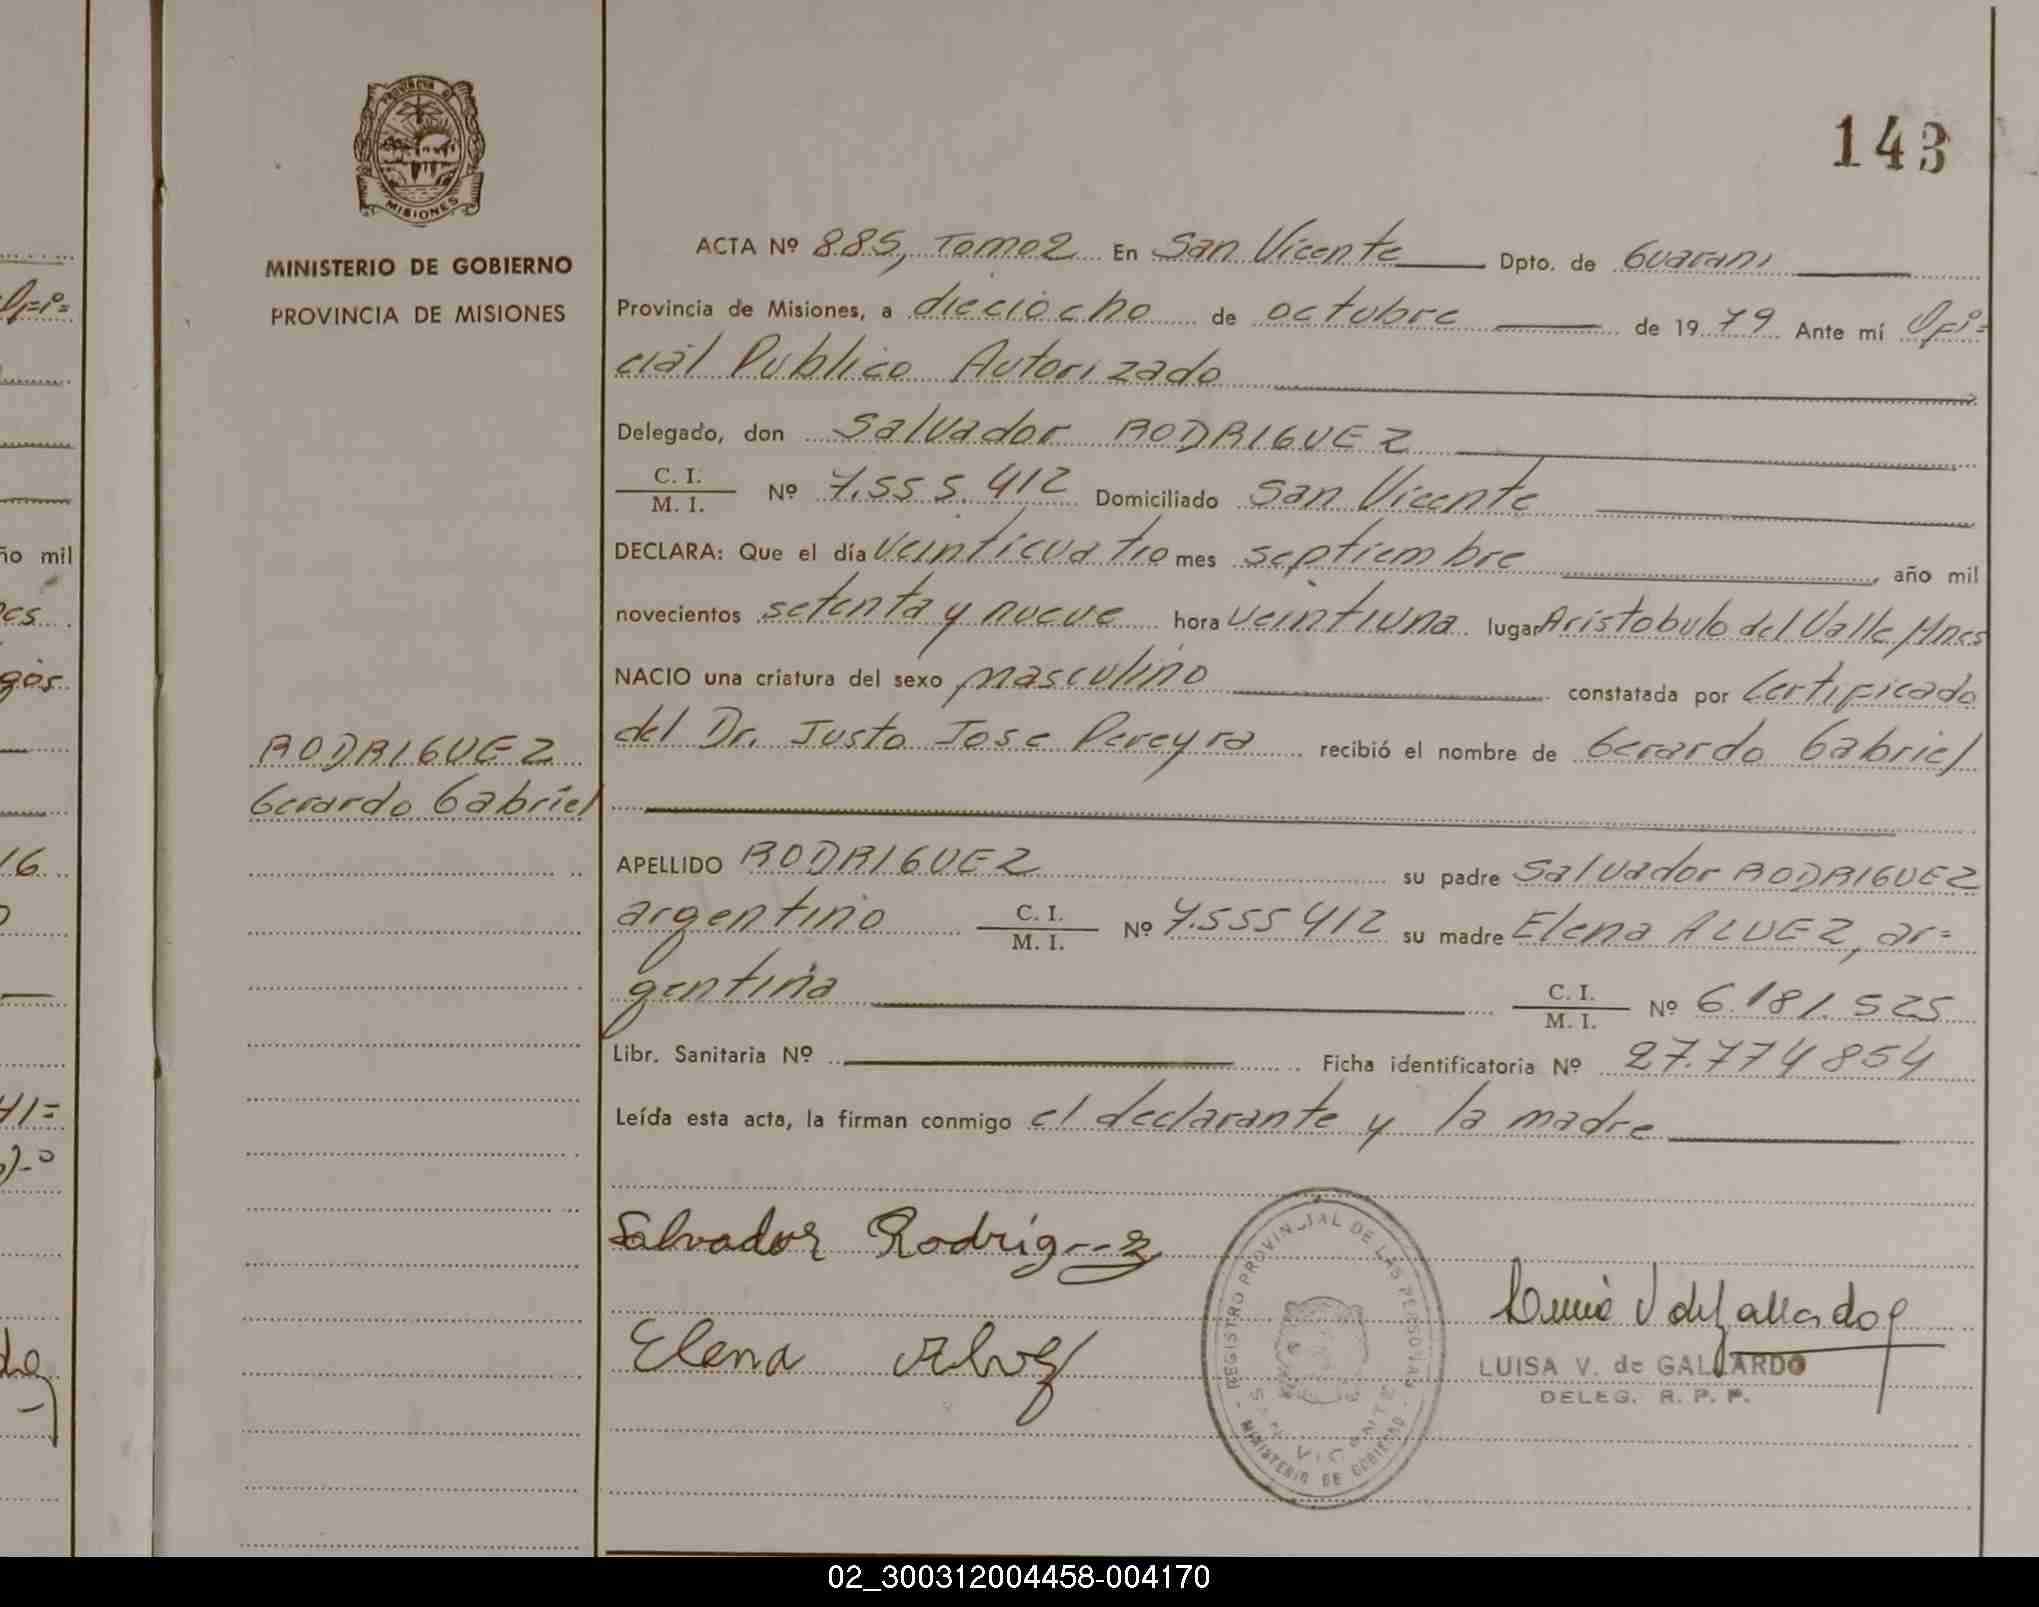 143
PROVINCIA DE
MISIONES
MINISTERIO DE GOBIERNO
PROVINCIA DE MISIONES
ACTA Nº 885, Tomo 2 En San Vicente Dpto. de Guarani
Provincia de Misiones, a dieciocho de octubre de 19 79 Ante mí Ofi=
cial Publico Autorizado
Delegado, don Salvador RODRIGUEZ
C. I.
M. I. Nº 7.555.412 Domiciliado San Vicente
DECLARA: Que el día veinticuatro mes septiembre, año mil
novecientos setenta y nueve hora veintiuna lugar Aristobulo del Valle Mnes
NACIO una criatura del sexo masculino constatada por Certificado
del Dr. Justo Jose Pereyra recibió el nombre de Gerardo Gabriel
RODRIGUEZ
Gerardo Gabriel
APELLIDO RODRIGUEZ su padre Salvador RODRIGUEZ
argentino C. I.
M. I. Nº 7.555 412 su madre Elena ALVEZ, ar=
gentina C. I.
M. I. Nº 6.181.525
Libr. Sanitaria Nº Ficha identificatoria Nº 27.774 854
Leída esta acta, la firman conmigo el declarante y la madre
Salvador Rodriguez
Elena Alvez
REGISTRO PROVINCIAL DE LAS PERSONAS
SAN VICENTE
MINISTERIO DE GOBIERNO
Luisa V de Gallardo
LUISA V. de GALLARDO
DELEG. R. P. P.
Ofi=
ño mil
16
41=
02_300312004458-004170